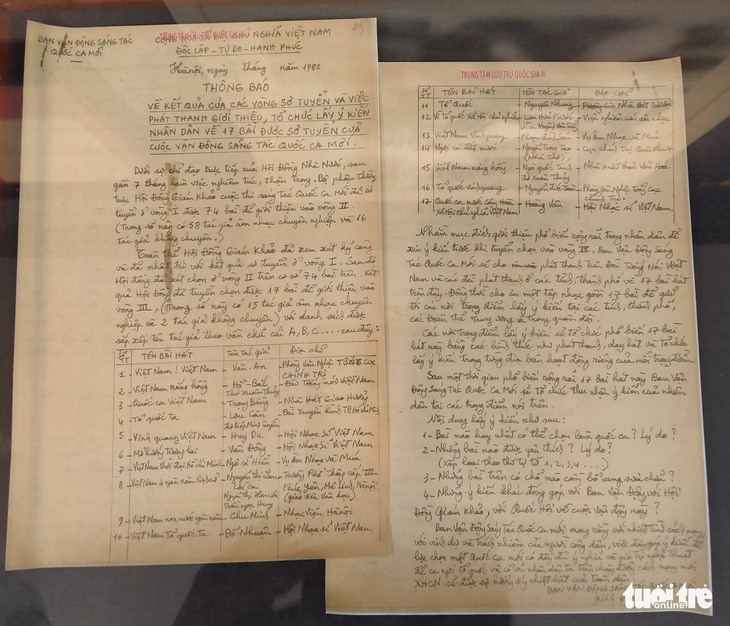 BAN VẬN ĐỘNG SÁNG TÁC
QUỐC CA MỚI
NGHĨA VIỆT NAM
ĐỘC LẬP - TỰ DO - HẠNH PHÚC
Hà Nội, ngày tháng năm 1982
THÔNG BÁO
VỀ KẾT QUẢ CỦA CÁC VÒNG SƠ TUYỂN VÀ VIỆC
PHÁT THANH GIỚI THIỆU, TỔ CHỨC LẤY Ý KIẾN
NHÂN DÂN VỀ 17 BÀI ĐƯỢC SƠ TUYỂN CỦA
CUỘC VẬN ĐỘNG SÁNG TÁC QUỐC CA MỚI.
Dưới sự chỉ đạo trực tiếp của Hội Đồng Nhà Nước, sau
gần 7 tháng làm việc nghiêm túc, thận trọng. Bộ phận thường
trực Hội Đồng Giám Khảo cuộc thi sáng tác Quốc Ca Mới đã sơ
tuyển ở vòng I được 74 bài để giới thiệu vào vòng II.
(Trong số này có 58 tác giả âm nhạc chuyên nghiệp và 16
tác giả không chuyên.)
Toàn thể Hội Đồng Giám Khảo đã xem xét kỹ càng
và đã nhất trí với kết quả sơ tuyển ở vòng I. Sau đó
Hội đồng đã xét chọn ở vòng II trên cơ sở 74 bài trên. Kết
quả Hội đồng đã tuyển chọn được 17 bài để giới thiệu vào
vòng III, (Trong số này có 15 tác giả âm nhạc chuyên
nghiệp và 2 tác giả không chuyên) với danh sách được
sắp xếp tên tác giả theo vần chữ cái A, B, C .... sau đây:
Số TT TÊN BÀI HÁT TÊN TÁC GIẢ ĐỊA CHỈ
1 - Việt Nam! Việt Nam - Văn An - Phòng Văn Nghệ TỔNG CỤC CHÍNH TRỊ
2 - Việt Nam nắng hồng - Hồ Bắc - Đài Tiếng nói Việt Nam
3 - Quốc ca Việt Nam - Trọng Bằng - Nhà Hát Giao Hưởng
4 - Tổ quốc ta - Lưu Cầu - Đài Truyền hình TP. Hồ Chí Minh
5 - Vinh quang Việt Nam - Huy Du - Hội Nhạc Sĩ Việt Nam
6 - Vân Đông - Hội Nhạc Sĩ Việt Nam
7 - Việt Nam thời đại Hồ Chí Minh - Ngô Sĩ Hiển - Vụ Âm Nhạc và Múa
8 - Việt Nam 4 ngàn năm - Nguyễn thị Lan - Trường Phổ Thông cấp III
9 - Việt Nam non nước ngàn năm - Chu Minh - Nhạc Viện Hà Nội
10 - Việt Nam Tổ quốc Ta - Đỗ Nhuận - Hội Nhạc sĩ Việt Nam
TRUNG TÂM LƯU TRỮ QUỐC GIA III
Số TT TÊN BÀI HÁT TÊN TÁC GIẢ ĐỊA CHỈ
11 - Tổ Quốc - Nguyễn Nhung
12 - Vì Tổ quốc Xã Hội chủ nghĩa
13 - Việt Nam Vinh quang - Vụ Âm Nhạc và Múa
14 - Ngợi ca đất nước - Nguyễn Trọng Tạo
15 - Việt Nam nắng hồng - Nhà xuất bản Văn Hóa
16 - Tổ quốc Vinh quang
17 - Hoàng Vân - Hội Nhạc sĩ Việt Nam
Nhằm mục đích giới thiệu phổ biến rộng rãi trong nhân dân để
xin ý kiến trước khi tuyển vào vòng III, Ban Vận Động Sáng
Tác Quốc Ca Mới sẽ cho phát thanh trên Đài Tiếng Nói Việt
Nam và các đài phát thanh ở các tỉnh, thành phố về 17 bài hát
trên đây. Đồng thời cho in một tập nhạc gồm 17 bài để gửi
tới các nơi trọng điểm lấy ý kiến tại các tỉnh, thành phố,
các Đoàn thể Trung ương và trong quân đội.
Các nơi trọng điểm lấy ý kiến sẽ tổ chức phổ biến 17 bài
hát này bằng các hình thức như phát thanh, dạy hát và tổ chức
lấy ý kiến trong từng địa bàn hoạt động riêng của mỗi trọng điểm.
Sau một thời gian phổ biến rộng rãi 17 bài hát này Ban Vận
Động Sáng Tác Quốc Ca Mới sẽ tổ chức thu nhận ý kiến của nhân
dân tại các trọng điểm nói trên.
Nội dung lấy ý kiến như sau:
1 - Bài nào hay nhất có thể chọn làm quốc ca? Lý do?
2 - Những bài nào được yêu thích? Lý do?
(xếp loại theo thứ tự từ 1, 2, 3, 4 ....)
3 - Những bài trên có chỗ nào cần bổ sung sửa chữa?
4 - Những ý kiến khác đóng góp với Ban Vận Động, với Hội
Đồng Giám khảo, với Quốc Hội về cuộc vận động này?
Ban Vận Động Sáng Tác Quốc Ca mới mong rằng với nhiệt tình cách mạng
với vinh dự và trách nhiệm của người công dân, việc đóng góp ý kiến để
lựa chọn một Quốc Ca mới có đầy đủ ý nghĩa và giá trị nghệ thuật
để ca ngợi tổ quốc và cổ vũ nhân dân ta trên chặng đường cách mạng mới
XHCN sẽ được sự hưởng ứng nhiệt liệt của toàn dân.
BAN VẬN ĐỘNG SÁNG
tuổi trẻ
online